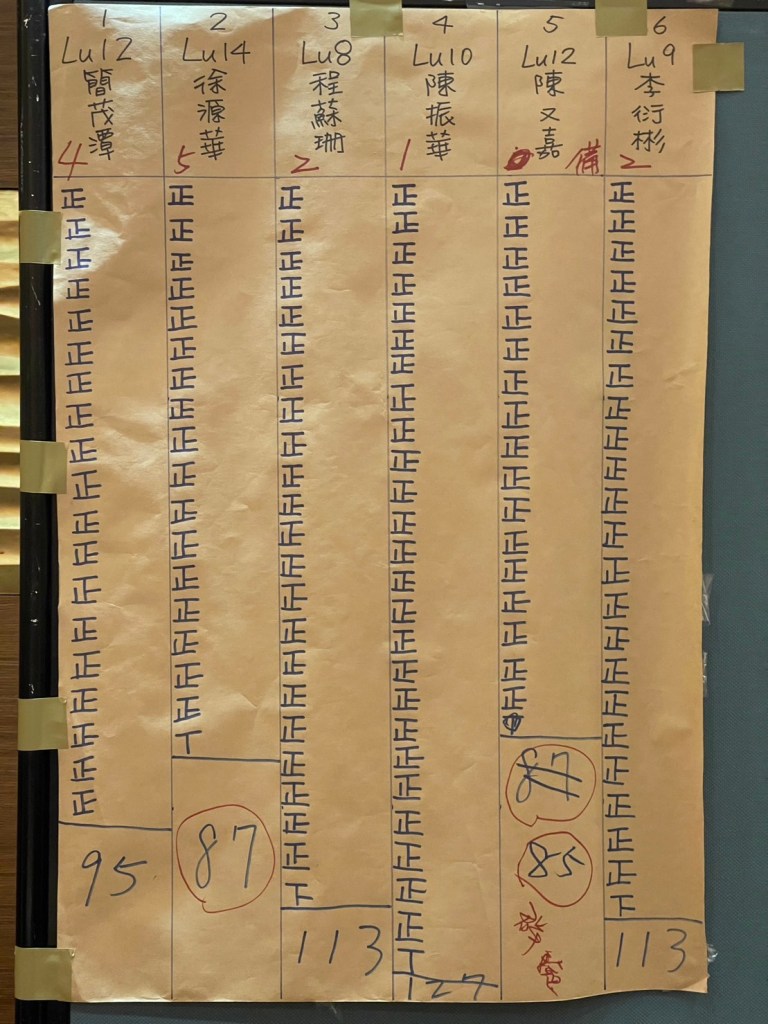 1
Lu12
簡茂潭
4
正正正正正正正正正正正正正正正正正正正
95
2
Lu14
徐源華
5
正正正正正正正正正正正正正正正正正丅
87
3
Lu8
程蘇珊
2
正正正正正正正正正正正正正正正正正正正正正正下
113
4
Lu10
陳振華
1
正正正正正正正正正正正正正正正正正正正正正正正正正丅
127
5
Lu12
陳又嘉
備
正正正正正正正正正正正正正正正正正
87
85
6
Lu9
李衍彬
2
正正正正正正正正正正正正正正正正正正正正正正下
113